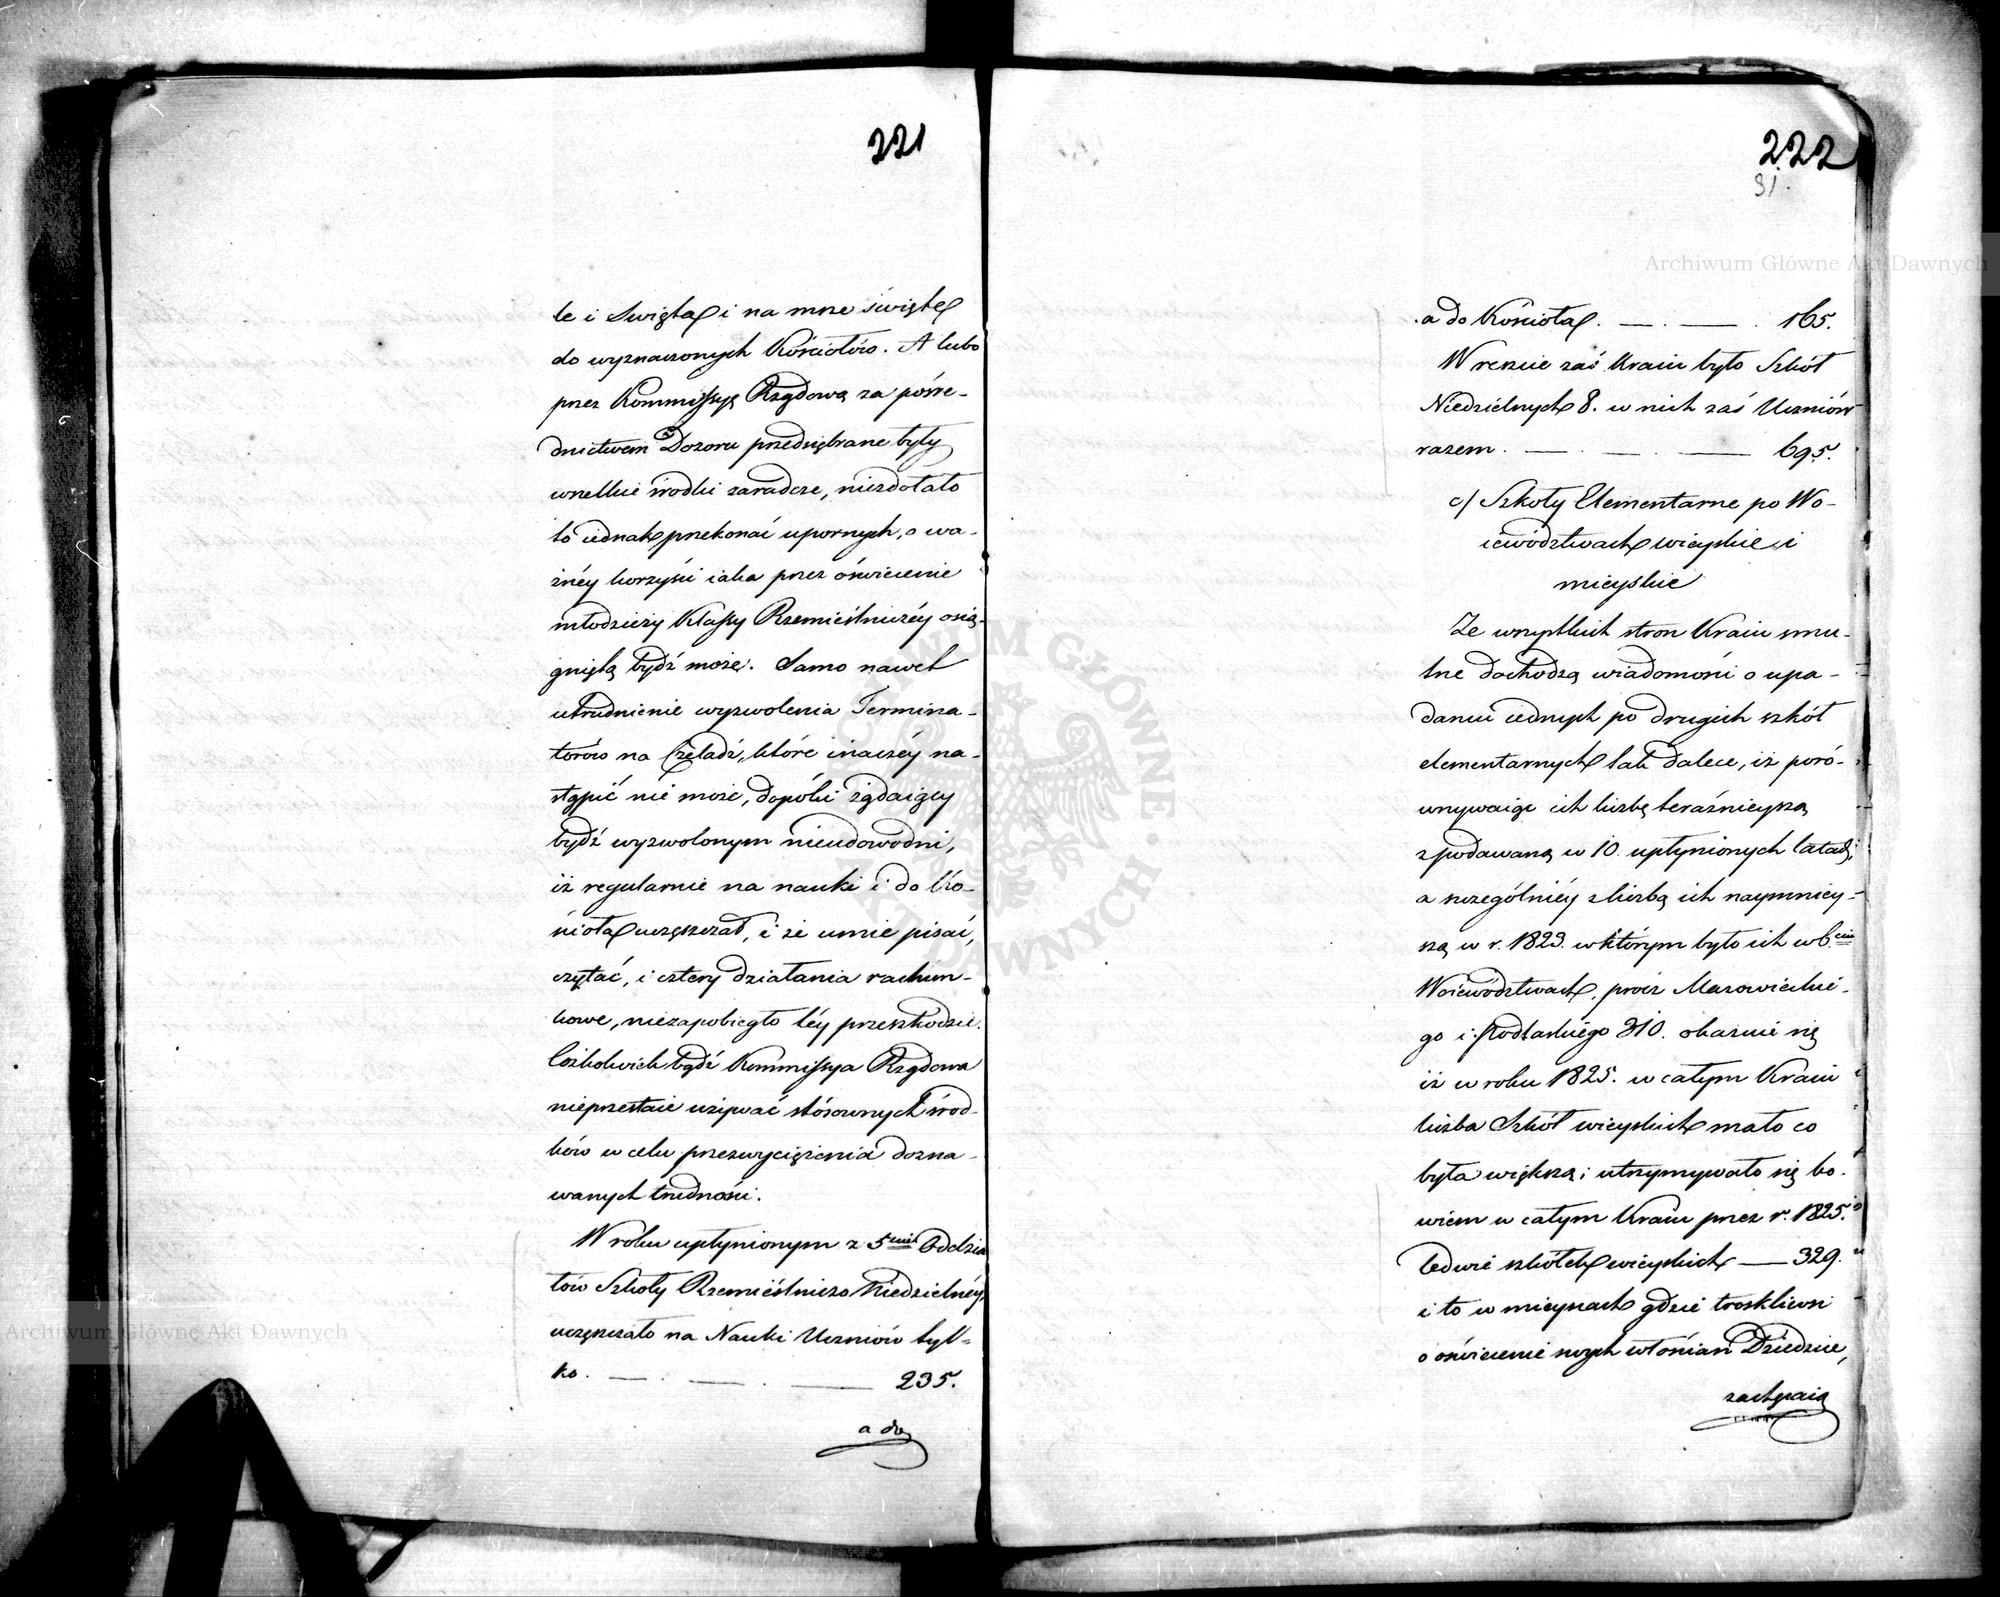 221
le i Swięta i na msze święte
do wyznaczonych Kościołów. A lubo
przez Kommissyę Rządową za pośre-
dnictwem Dozoru przedsiębrane były
wszelkie środki zaradcze, niezdołało
to iednak przekonać upornych, o wa-
żnéy korzyści iaka przez oświecenie
młodzieży Klassy Rzemieślniczéy osią-
gniętą bydź może. Samo nawet
utrudnienie wyzwolenia Termina-
torów na Czeladź, które inaczéy na-
stąpić nie może, dopóki żądaiący
bydź wyzwolonym nieudowodni,
iż regularnie na nauki i do Ko-
ścioła uczęszczał, i że umie pisać,
czytać, i cztery działania rachun-
kowe, niezapobiegło téy przeszkodzie.
Cóżkolwiek bądź Kommissya Rządowa
nieprzestaie używać stósownych środ-
ków w celu przezwyciężenia dozna-
wanych trudności.
W roku upłynionym z 5ciu Oddzia
łów Szkoły Rzemieślniczo Niedzielnéy,
uczęszczało na Nauki Uczniów tyl-
ko. — . — . — 235.
a do
222
31.
Archiwum Główne Akt Dawnych
a do Kościoła. — . — . 165.
W reszcie zaś Kraiu było Szkół
Niedzielnych 8. w nich zaś Uczniów
razem. — . — . — 695.
c/ Szkoły Elementarne po Wo-
iewództwach wieyskie i
mieyskie
Ze wszystkich stron Kraiu smu-
tne dochodzą wiadomości o upa-
daniu iednych po drugich szkół
elementarnych tak dalece, iż poró-
wnywaiąc ich liczbę teraźnieyszą
z podawaną w 10. upłynionych latach,
a szczególniéy z liczbą ich naymniey-
szą w r. 1823. w którym było ich w 6.ciu
Woiewództwach, prócz Mazowieckie-
go i Podlaskiego 310. okazuie się
iż w roku 1825. w całym Kraiu
liczba Szkół wieyskich mało co
była większą; utrzymywało się bo-
wiem w całym Kraiu przez r. 1825.
ledwie szkółek wieyskich — 329.
i to w mieyscach gdzie troskliwsi
o oświecenie swych włościan Dziedzice,
zachęcaią
Archiwum Główne Akt Dawnych
ARCHIWUM GŁÓWNE AKT DAWNYCH